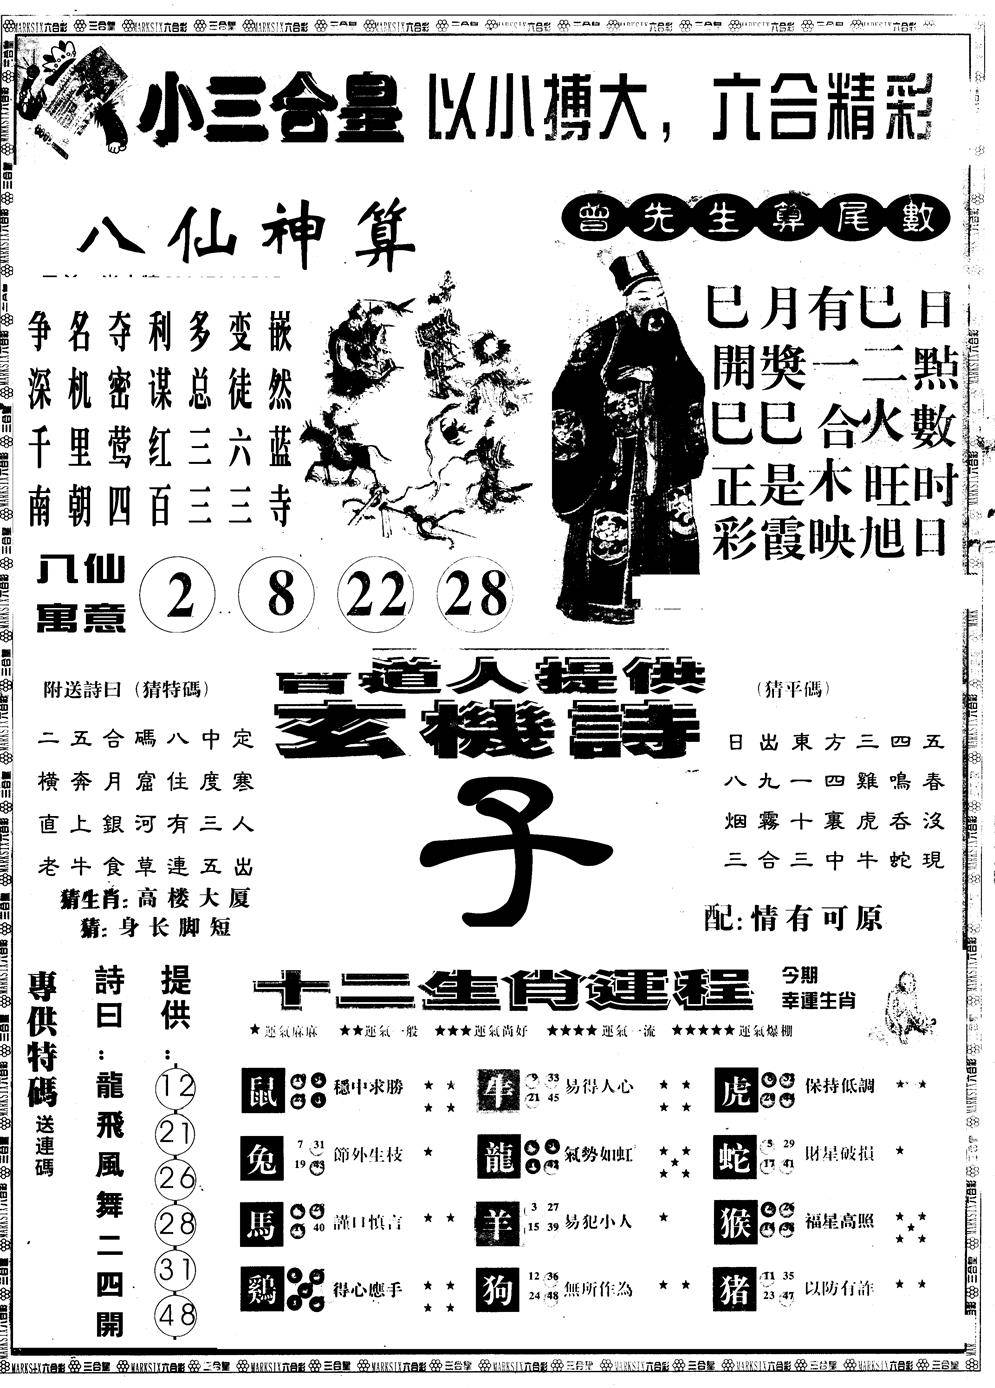 小三合皇 以小搏大，六合精彩
八仙神算
曾先生算尾數
争名夺利多变嵌
深机密谋总徒然
千里莺红三六蓝
南朝四百三三寺
八仙寓意 2 8 22 28
巳月有巳日
開獎一二點
巳巳合火數
正是木旺时
彩霞映旭日
曾道人提供
玄機詩
子
附送詩曰（猜特碼）
二五合碼八中定
橫奔月窟住度寒
直上銀河有三人
老牛食草連五出
猜生肖：高楼大厦
猜：身长脚短
（猜平碼）
日出東方三四五
八九一四雞鳴春
烟霧十裏虎吞沒
三合三中牛蛇現
配：情有可原
專供特碼 送連碼
詩曰：龍飛風舞二四開
提供：12 21 26 28 31 48
十二生肖運程
今期
幸運生肖
★運氣麻麻 ★★運氣一般 ★★★運氣尚好 ★★★★運氣一流 ★★★★★運氣爆棚
鼠 穩中求勝 ★★★★
牛 33 21 45 易得人心 ★★★★
虎 保持低調 ★★
兔 7 31 19 43 節外生枝 ★
龍 42 氣勢如虹 ★★★★★
蛇 5 29 17 41 財星破損 ★
馬 40 謹口慎言 ★★
羊 3 27 15 39 易犯小人 ★
猴 福星高照 ★★★★★
鷄 得心應手 ★★★★
狗 12 36 24 48 無所作為 ★★
猪 11 35 23 47 以防有詐 ★★
MARKSIX六合彩 三合皇